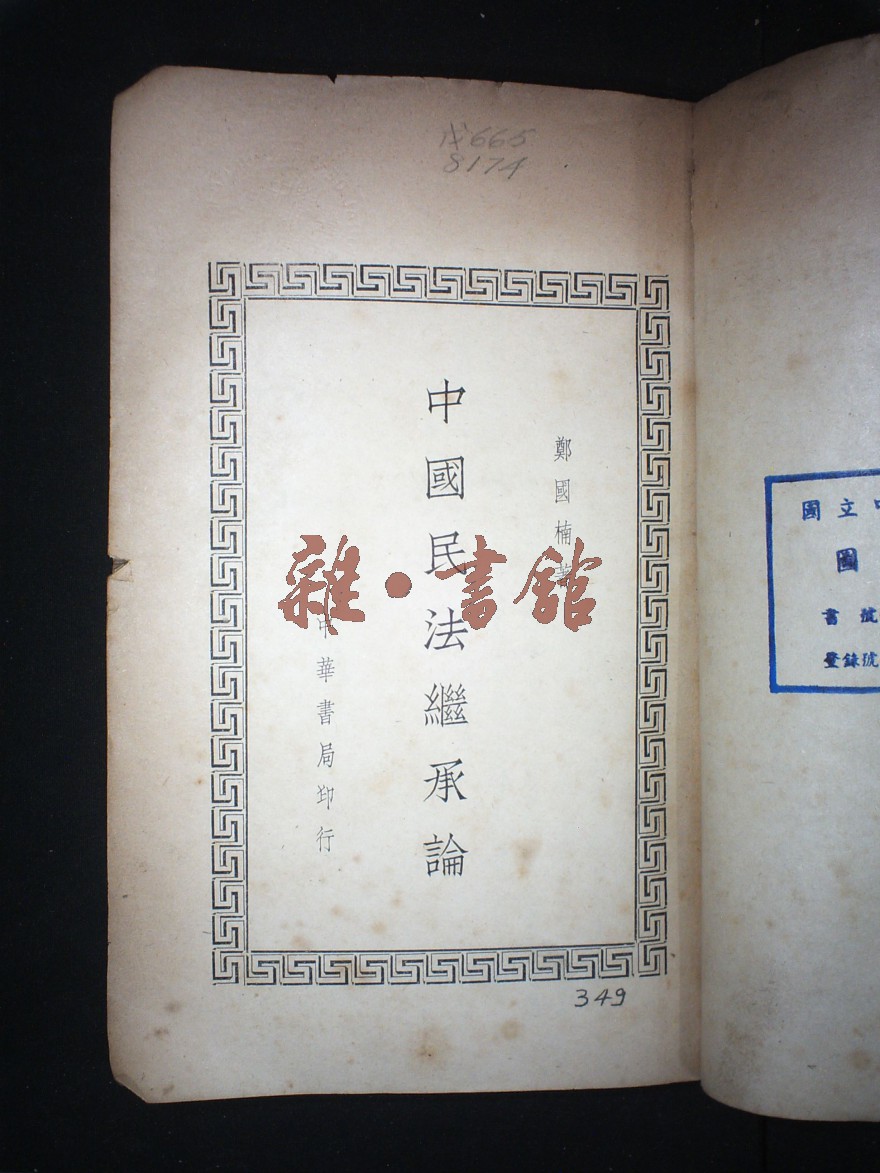 戊665
8174
鄭國楠著
中國民法繼承論
中華書局印行
雜·書館
349
圖立
圖
書號
登錄號